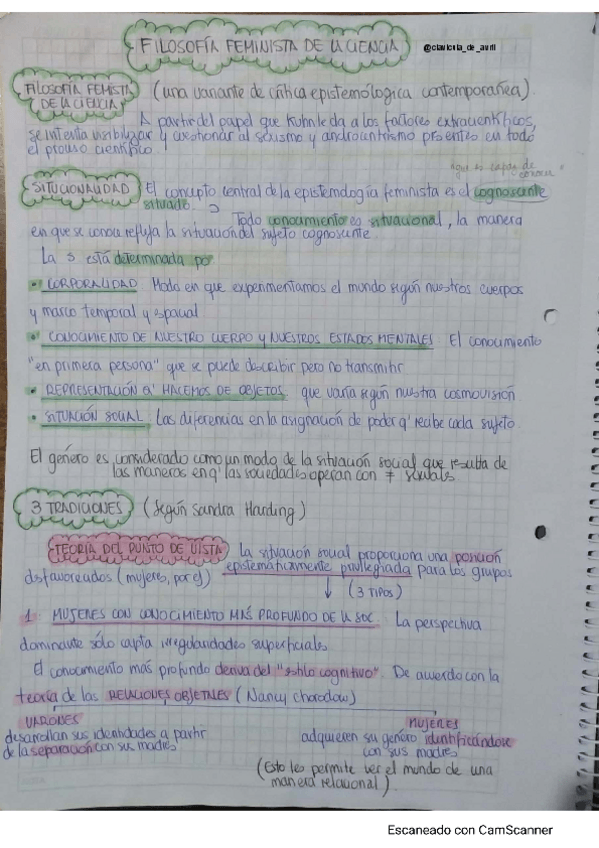 FILOSOFÍA FEMINISTA DE LA CIENCIA
FILOSOFÍA FEMISTA (una variante de crítica epistemólogica contemporanea).
DE LA CIENCIA
A partir del papel que Kuhn le da a los factores extracientíficos,
se intenta visibilizar y cuestionar al sexismo y androcentrismo presentes en todo
el proceso científico.
"que es capaz de
conocer"
SITUCIONALIDAD El concepto central de la epistemología feminista es el cognoscente
situado. Todo conocimiento es situacional, la manera
en que se conoce refleja la situación del sujeto cognoscente.
La s está determinada por
• CORPORALIDAD Modo en que experimentamos el mundo según nuestros cuerpos
y marco temporal y espacial
• CONOCIMIENTO DE NUESTRO CUERPO Y NUESTROS ESTADOS MENTALES: El conocimiento
"en primera persona" que se puede describir pero no transmitir
• REPRESENTACIÓN Q' HACEMOS DE OBJETOS: que varía según nuestra cosmovisión
• SITUACIÓN SOCIAL: Las diferencias en la asignación de poder q' recibe cada sujeto.
El género es considerado como un modo de la situación social que resulta de
las maneras en q' las sociedades operan con ≠ sexuales
3 TRADICIONES (según Sandra Harding)
TEORIA DEL PUNTO DE VISTA La situación social proporciona una posición
epistemáticamente privilegiada para los grupos
desfavorecidos (mujeres, por ej)
↓ (3 TIPOS)
1. MUJERES CON CONOCIMIENTO MÁS PROFUNDO DE LA SOC. La perspectiva
dominante sólo capta irregularidades superficiales
El conocimiento más profundo deriva del "estilo cognitivo". De acuerdo con la
teoría de las RELACIONES OBJETALES (Nancy Chorodow)
VARONES
desarrollan sus identidades a partir
de la separación con sus madres
MUJERES
adquieren su género identificándose
con sus madres
(Esto les permite ver el mundo de una
manera relacional)
Escaneado con CamScanner